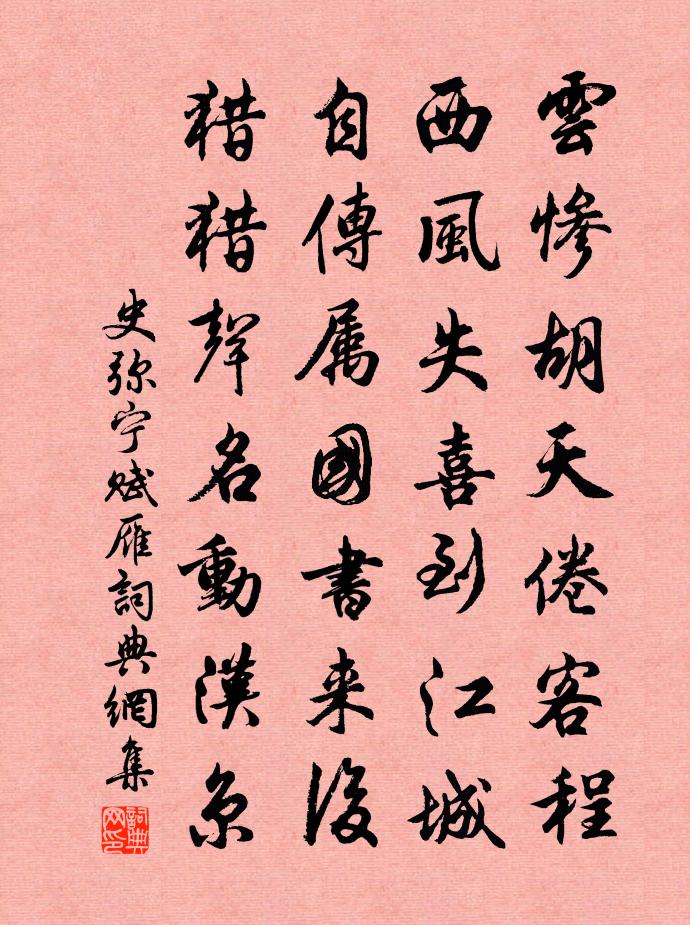 雲慘胡天倦客程
西風失喜到江城
自傳属國書来後
猎猎聲名動漢京
史弥宁赋雁詞典網集
詞典网印